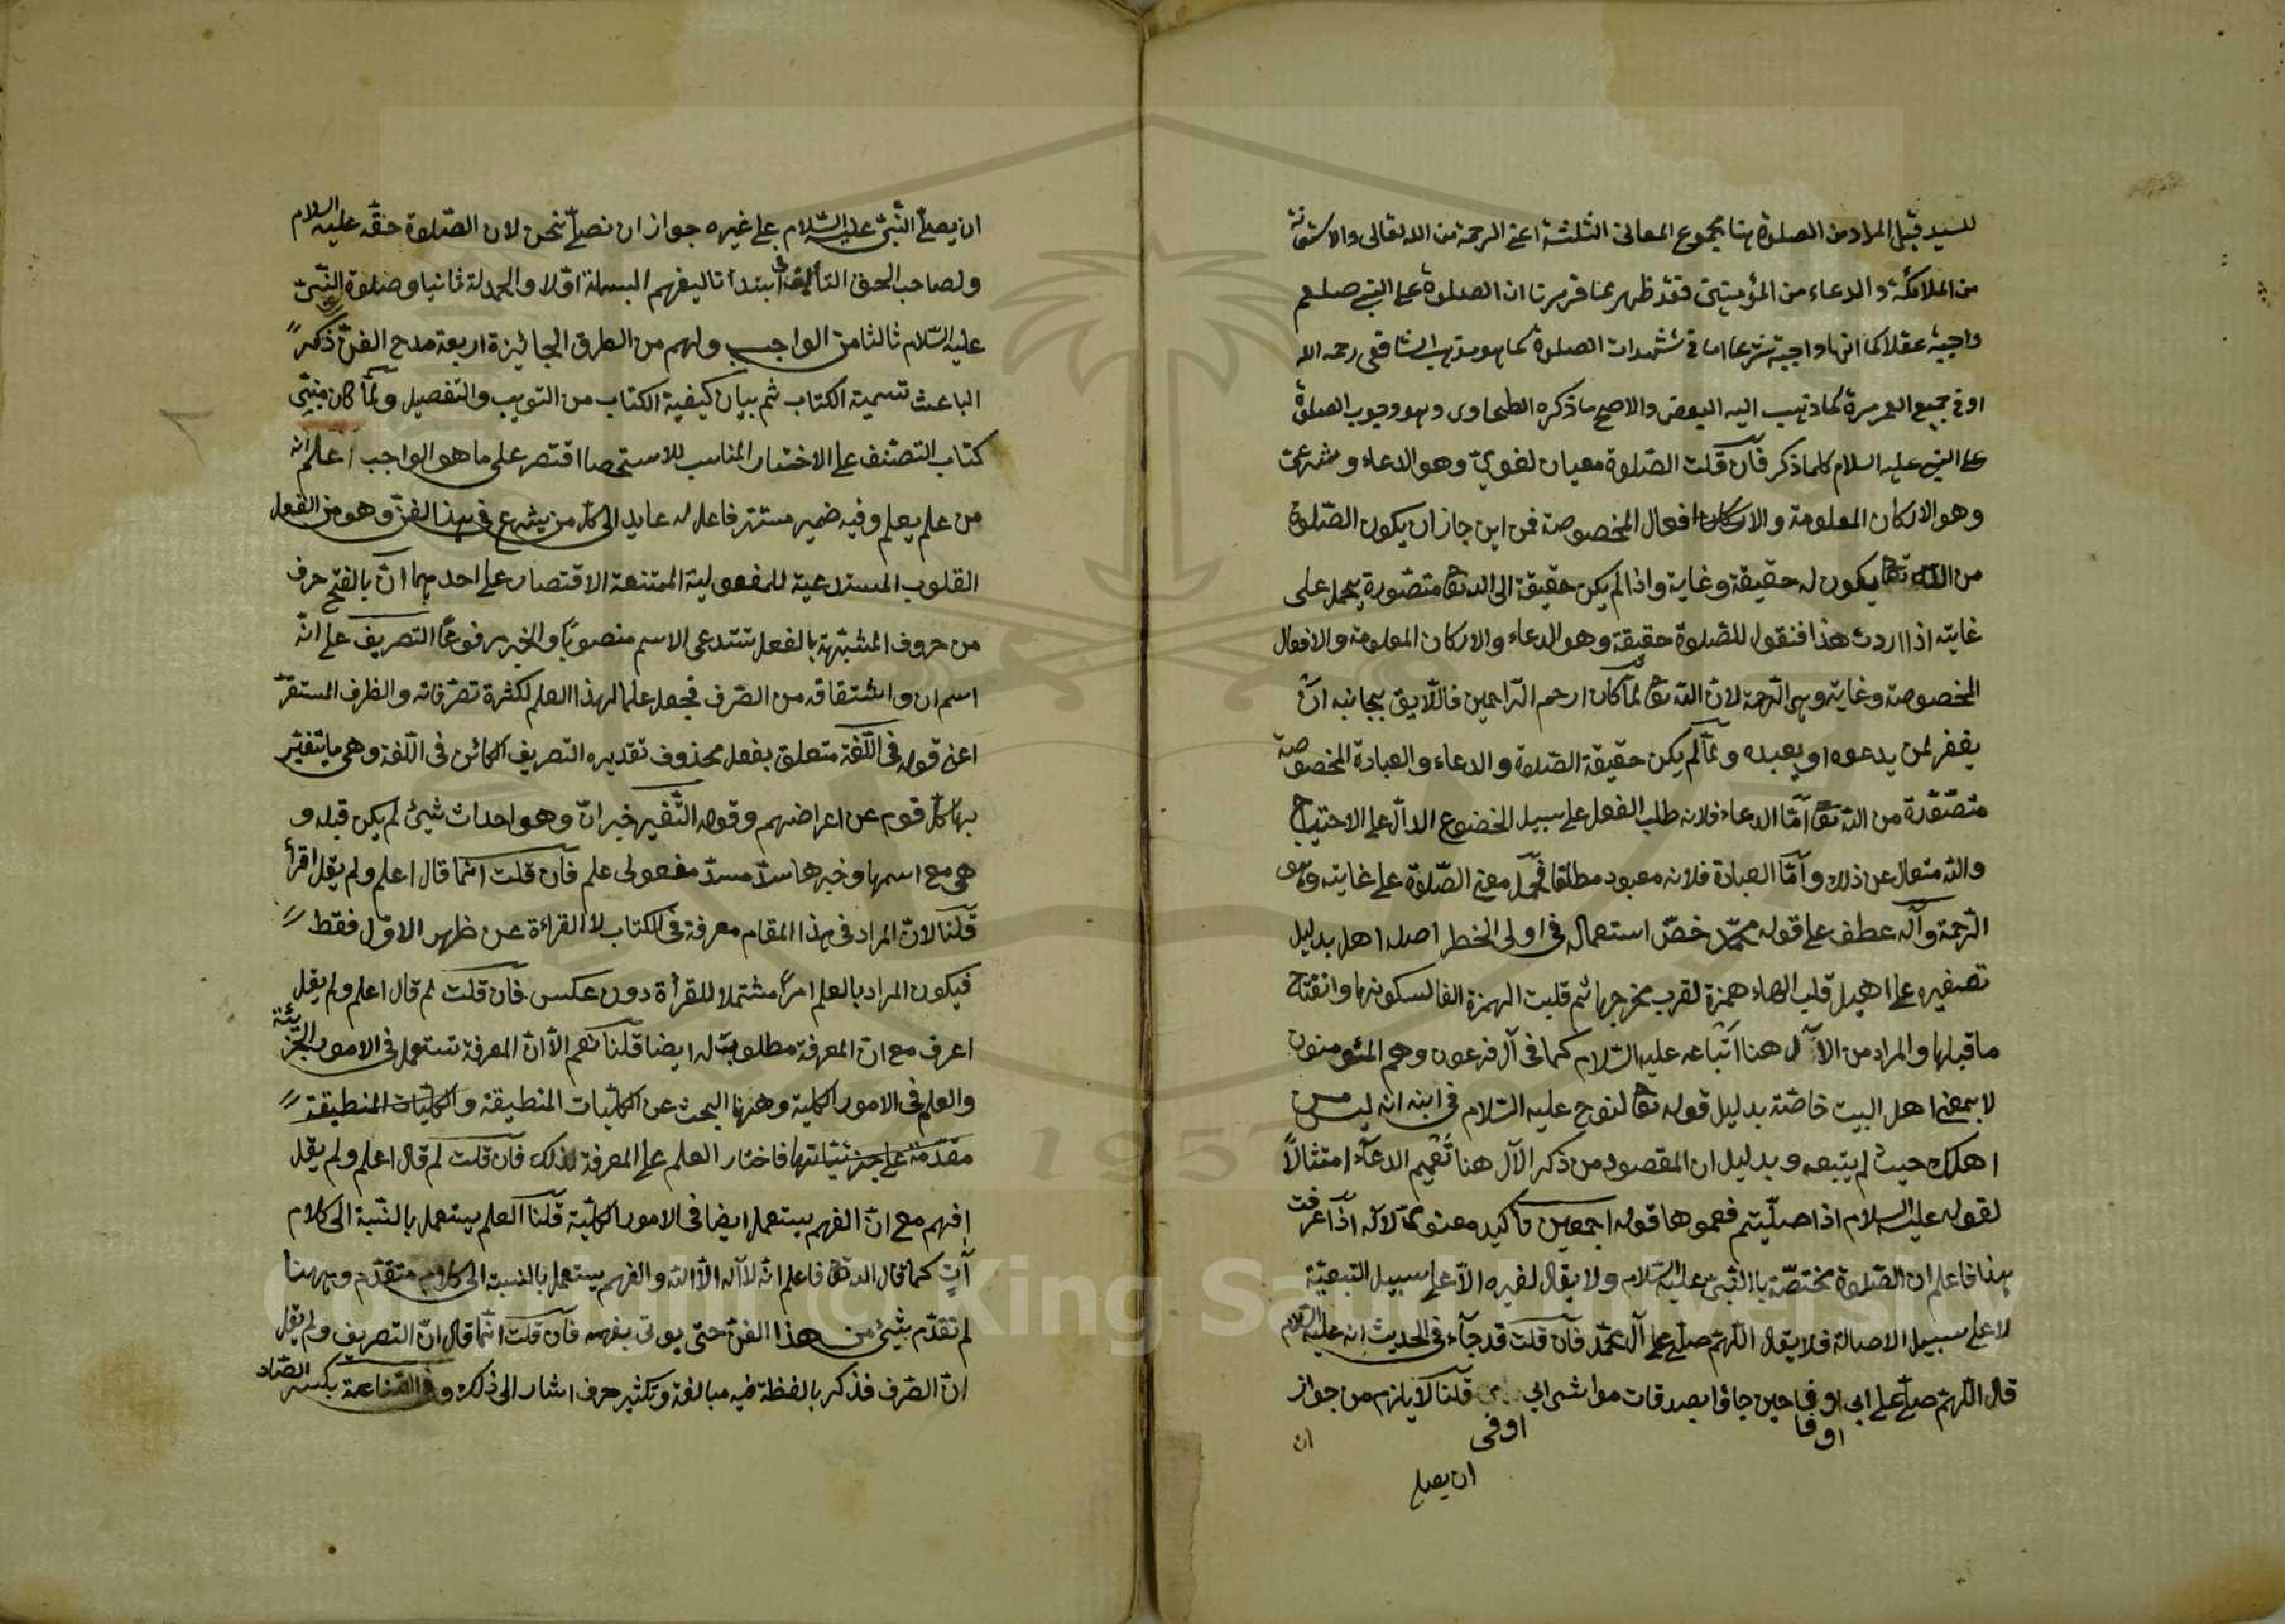 للسيد قيل المراد من الصلوة هنا مجموع المعانى الثلثة اعنى الرحمة من الله تعالى والاستغفار
من الملائكة والدعاء من المؤمنين فقد ظهر مما قررنا ان الصلوة على النبى صلعم
واجبة عقلا كما انها واجبة شرعا اما فى تشهدات الصلوة كما هو مذهب الشافعى رحمه الله
او فى جميع العمر مرة كما ذهب اليه البعض والاصح ما ذكره الطحاوى وهو وجوب الصلوة
على النبى عليه السلام كلما ذكر فان قلت الصّلوة معيان لغوىّ وهو الدعاء وشرعىّ
وهو الاركان المعلومة والافعال المخصوصة فمن اين جاز ان يكون الصّلوة
من الله تعا يكون له حقيقة وغاية واذا لم يكن حقيقة الى الله تعا متصّورة يحمل على
غايته اذا اردت هذا فنقول للصّلوة حقيقة وهو الدعاء والاركان المعلومة والافعال
المخصوصة وغاية وهى الرّحمة لانّ الله تعا لمّا كان ارحم الرّاحمين فاللّايق بجانبه انّ
يغفر لمن يدعوه او يعبده ولمّا لم يكن حقيقة الصّلوة والدعاء والعبادة المخصوصة
متصّورة من الله تعا امّا الدعاء فلانه طلب الفعل على سبيل الخضوع الدالّ على الاحتياج
والله متعال عن ذلك وامّا العبادة فلانه معبود مطلقا فحمل معنى الصّلوة على غايته وهى
الرّحمة وآله عطف على قوله محمّد خصّ استعماله فى اولى الخطر اصله اهل بدليل
تصغيره على اهيل قلب الهاء همزة لقرب مخرجها ثم قلبت الهمزة الفا لسكونها وانفتاح
ما قبلها والمراد من الآل هنا اتّباعه عليه السّلام كما فى آل فرعون وهم المئومنون
لا بمعنى اهل البيت خاصّة بدليل قوله تعا لنوح عليه السّلام فى ابنه انه ليس من
اهلك حيث لم يتبعه وبدليل ان المقصود من ذكر الآل هنا تعميم الدعآء امتثالاً
لقوله عليه السلام اذا صلّيتم فعمموها قوله اجمعين تأكيد معنوى لآله اذا عرفت
هذا فاعلم ان الصّلوة مختصّة بالنّبى عليه السّلام ولا يقال لغيره الّا على سبيل التبعيّة
لا على سبيل الاصالة فلا يقال اللّهم صلّ على آل محمّد فان قلت قد جآء فى الحديث انه عليه السلام
قال اللّهم صلّ على ابى اوفا حين جاؤا بصدقات مواشى ابى اوفى قلنا لا يلزم من جواز
اوفا
اوفى
ان
ان يصلى
ان يصلّى النّبى عليه السّلام على غيره جواز ان نصلّى نحن لان الصّلوة حقّه عليه السلام
ولصاحب الحق التأليف ابتدا تاليفهم البسملة اوّلا والحمدلة ثانيا وصلوة النّبىّ
عليه السّلام ثالثا من الواجب ولهم من الطرق الجائزة اربعة مدح الفنّ ذكر
الباعث تسمية الكتاب ثم بيان كيفية الكتاب من التبويب والتفصيل ولمّا كان مبنى
كتاب التصنف على الاختصار المناسب للاستحصا اقتصر على ما هو الواجب اعلم انّ
من علم يعلم وفيه ضمير مستتر فاعله عايد الى كلّ من يشرع فى هذا الفنّ وهو من الفعل
القلوب المستدعية للمفعولية الممتنعة الاقتصار على احدهما انّ بالفتح حرف
من حروف المشبّهة بالفعل تستدعى الاسم منصوبًا والخبر مرفوعًا التصريف على انّه
اسم ان واشتقاقه من الصّرف فجعل علما لهذا العلم لكثرة تصرّفاته والظرف المستقرّ
اعنى قوله فى اللّغة متعلق بفعل محذوف تقديره التصريف الكائن فى اللّغة وهى ما يتغيّر
بها كلّ قوم عن اعراضهم وقوله التّغيير خبر انّ وهو احداث شيئ لم يكن قبله و
هى مع اسمها وخبرها سدّ مسدّ مفعولى علم فان قلت انّما قال اعلم ولم يقل اقرأ
قلنا لانّ المراد فى هذا المقام معرفة فى الكتاب لا القراءة عن ظهر الاوّل فقط
فيكون المراد بالعلم امرًا مشتملا للقرأة دون عكس فان قلت لم قال اعلم ولم يقل
اعرف مع انّ المعرفة مطلوبة له ايضا قلنا نعم الّا انّ المعرفة تستعمل فى الامور الجزئية
والعلم فى الامور الكلية وههنا البحث عن الكلّيات المنطيقة والكلّيات المنطيقة
مقدّمة على جزئيّاتها فاختار العلم على المعرفة لذلك فان قلت لم قال اعلم ولم يقل
افهم مع انّ الفهم يستعمل ايضا فى الامور الكلّية قلنا العلم يستعمل بالنّسبة الى كلام
آتٍ كما قال الله تعا فاعلم انّه لا آله الّا الله والفهم يستعمل بالنسبة الى كلام متقدّم وههنا
لم تقدّم شيئ من هذا الفنّ حتى يوتى بفهم فان قلت انّما قال انّ التصريف ولم يقل
انّ الصّرف فذكر بالفظة فيه مبالغة وتكثير حرف اشار الى ذلك وفى الصّناعة بكسر الصّاد